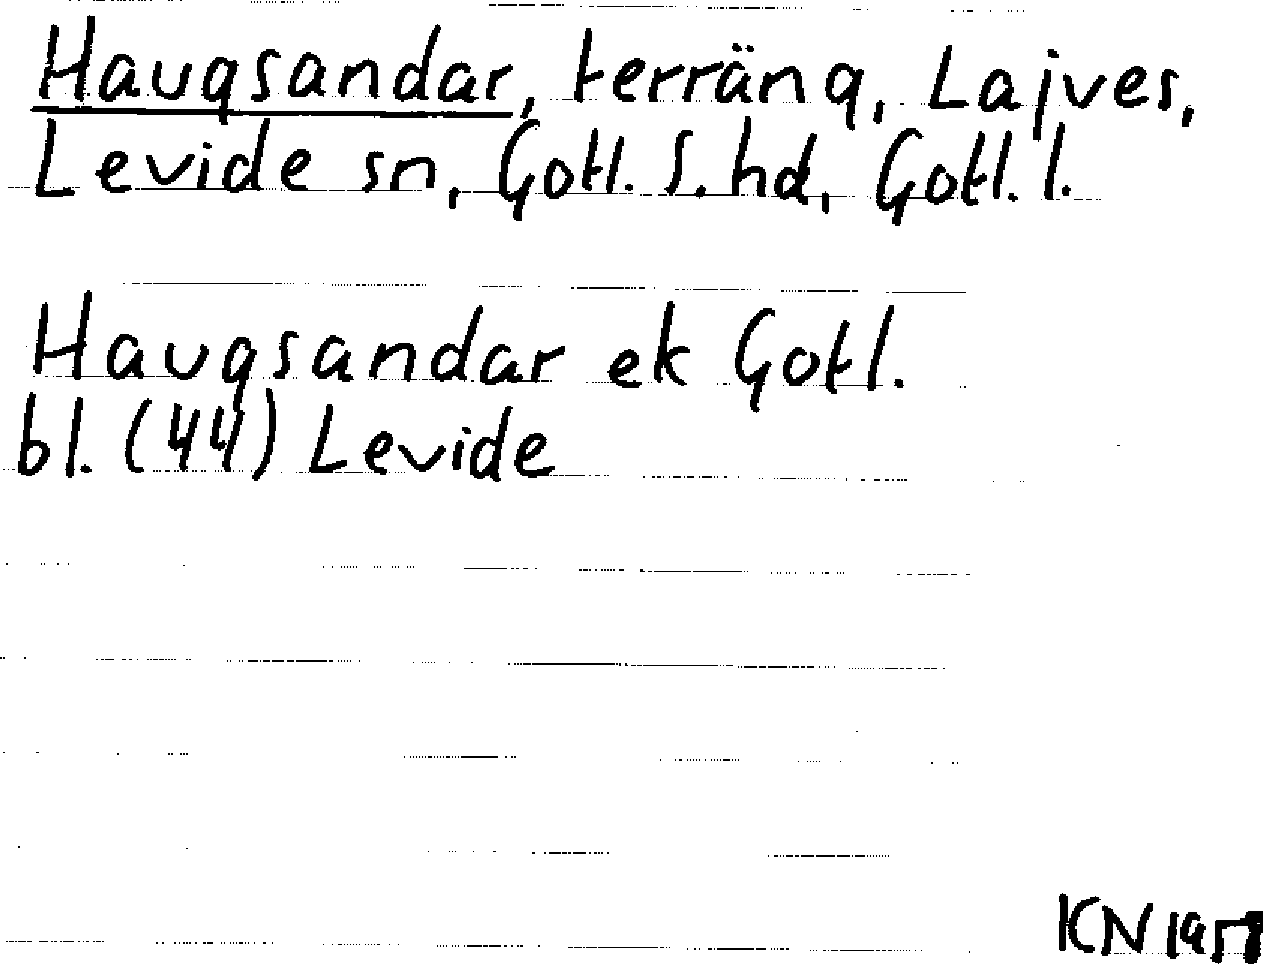 Haugsandar, terräng, Lajves,
Levide sn, Gotl. S. hd, Gotl. l.
Haugsandar ek Gotl.
bl. (44) Levide
KN